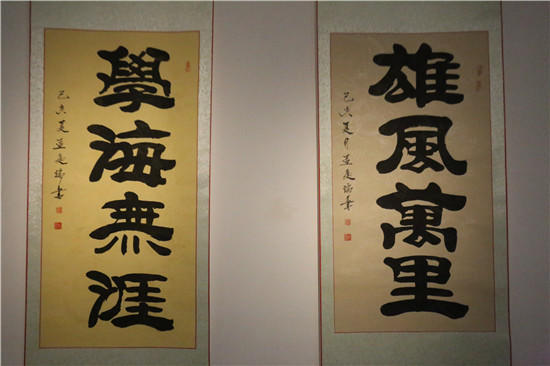 學海無涯
己亥夏孟延瑞書
雄風萬里
己亥夏月孟延瑞書